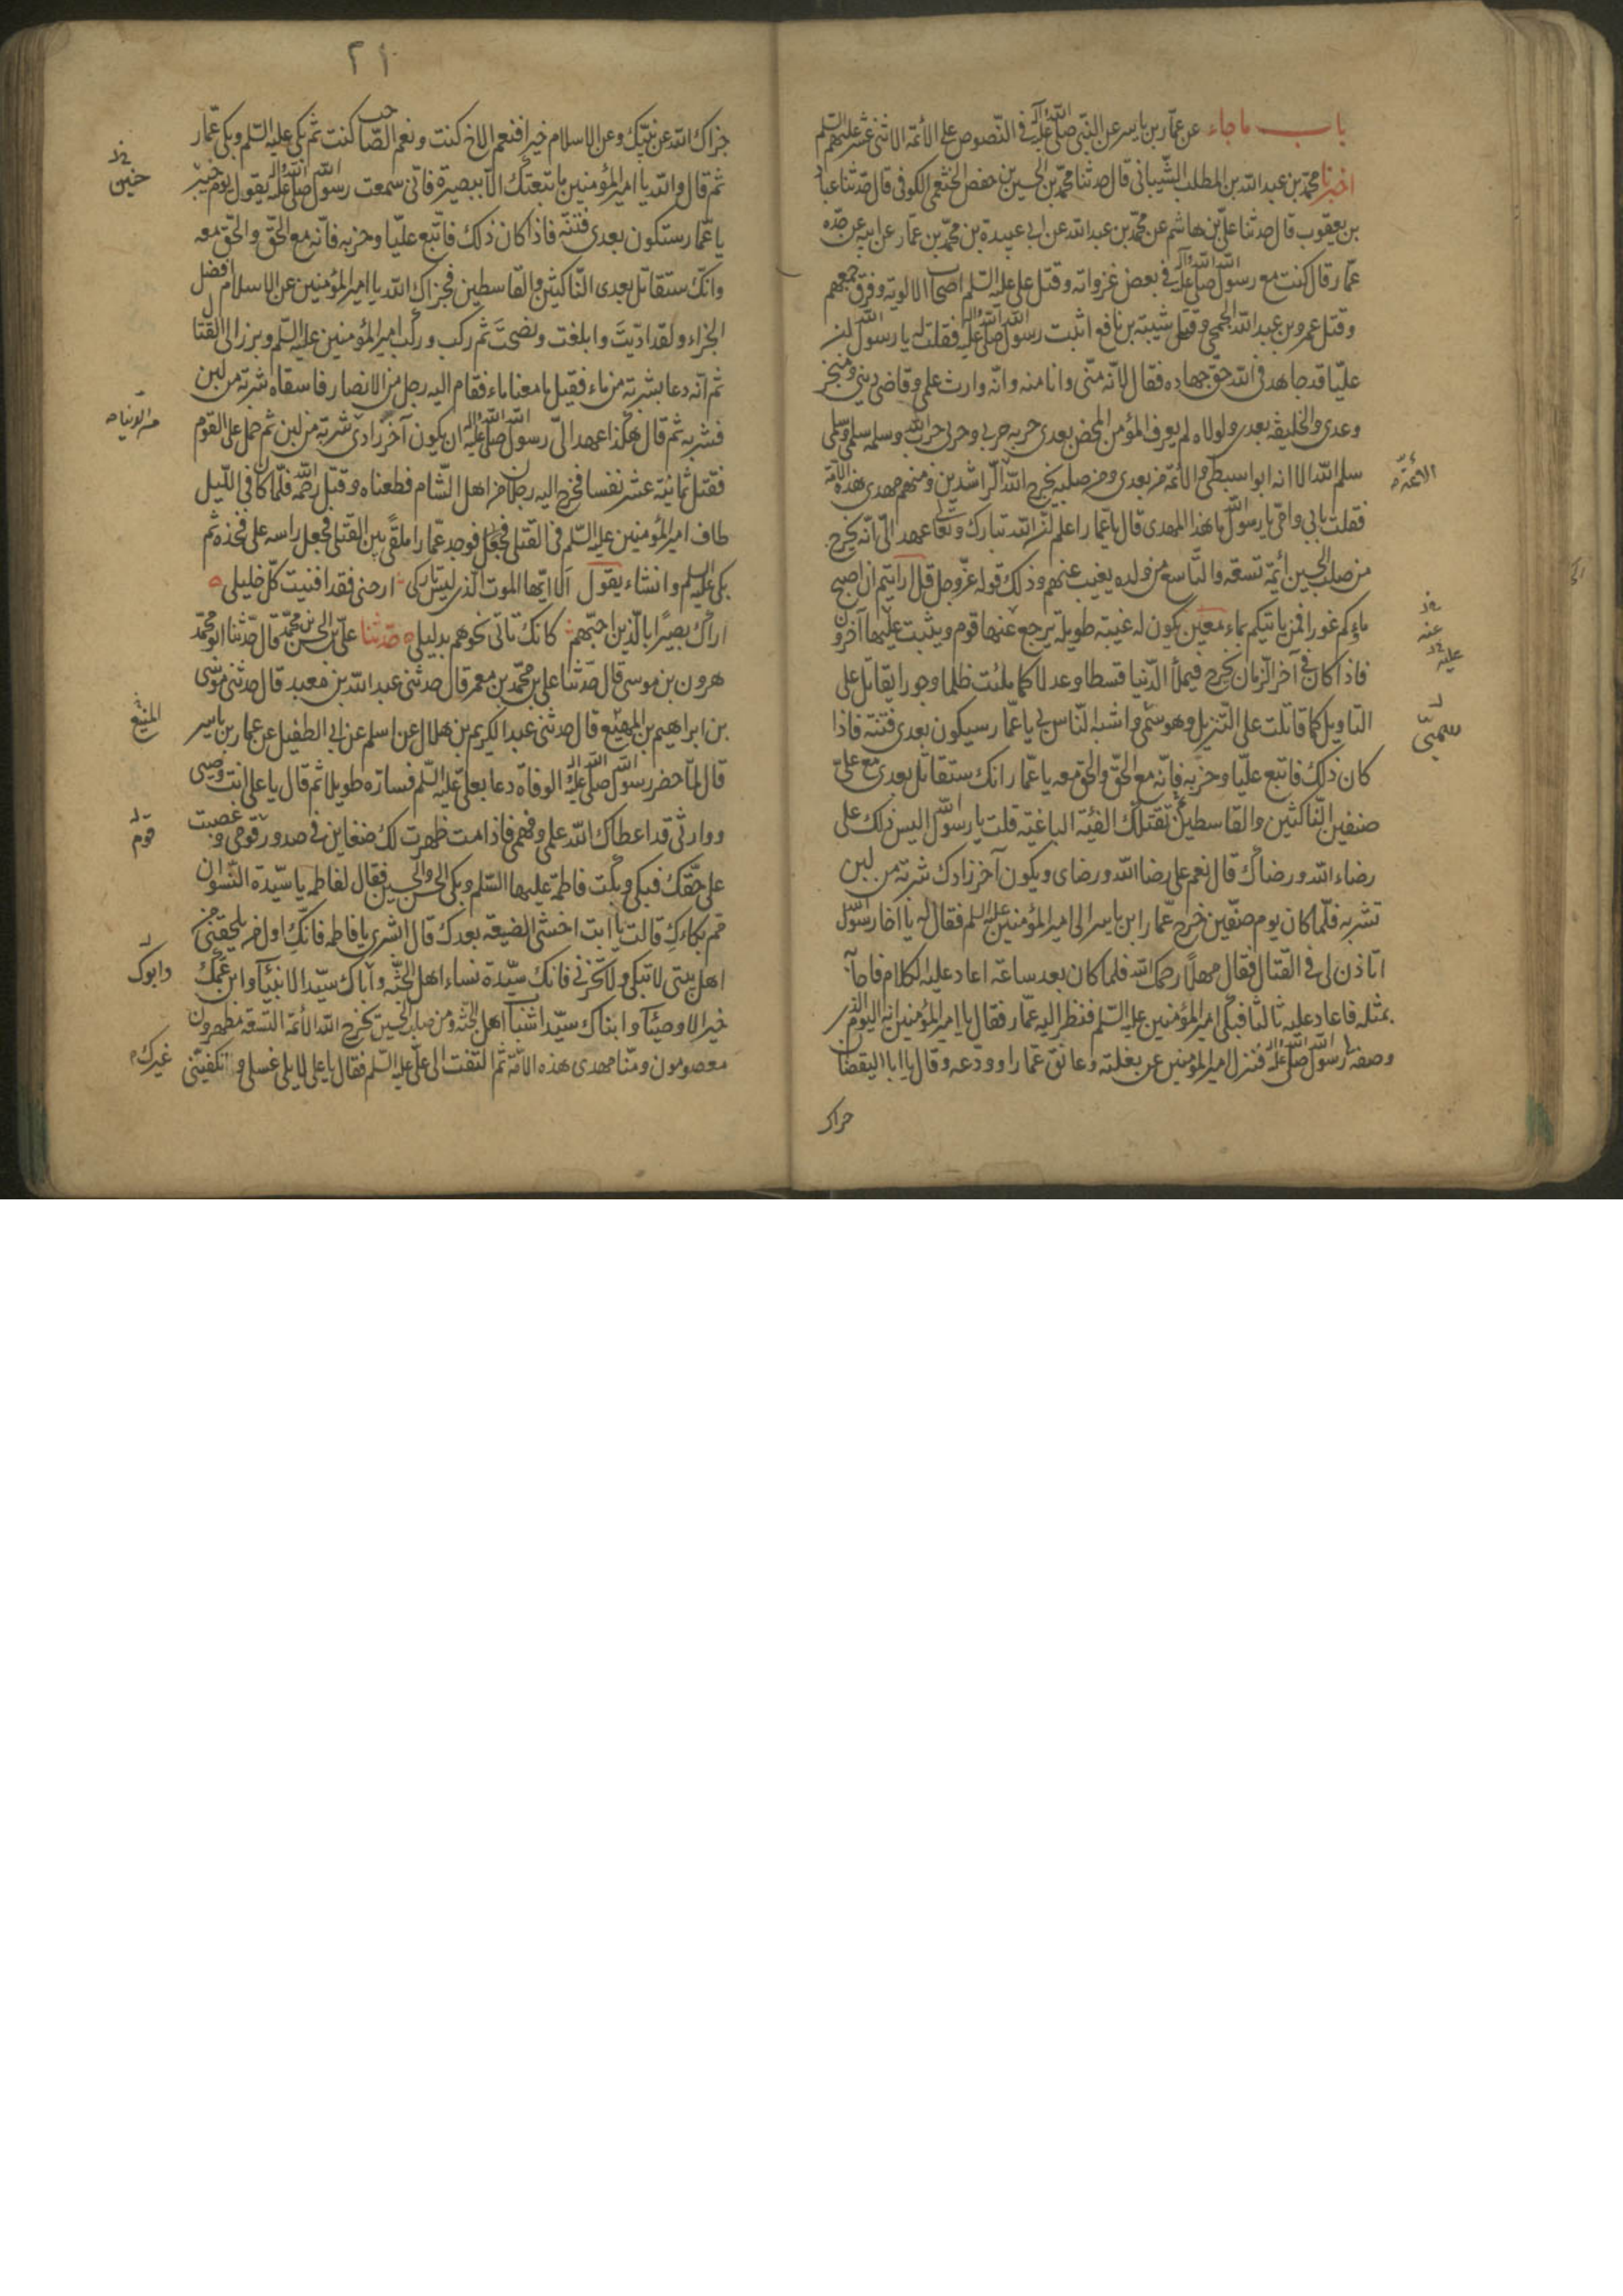 باب ما جاء عن عمّار بن ياسر عن النبي صلى الله عليه وآله في النّصوص على الأئمة الاثنى عشر عليهم السلم
اخبرنا محمّد بن عبد الله بن المطلب الشّيبانى قال حدثنا محمّد بن الحسين بن حفص الخثعمى الكوفى قال حدّثنا عباد
بن يعقوب قال حدثنا علىّ بن هاشم عن محمّد بن عبد الله عن ابى عبيدة بن محمّد بن عمّار عن ابيه عن جدّه
عمّار قال كنت مع رسول الله صلى الله عليه وآله في بعض غزواته وقتل على عليه السّلم اصحاب الالوية وفرق جمعهم
وقتل عمرو بن عبد الله الجمحى وقتل شيبة بن نافع اتيت رسول الله صلى الله عليه وآله فقلت له يا رسول الله ان
عليّا قد جاهد فى الله حقّ جهاده فقال لانّه منّى وانا منه وانّه وارث علمى وقاضى دينى ومنجز
وعدى والخليفة بعدى ولولاه لم يعرف المؤمن المحض بعدى حربه حربى وحربى حرب الله وسلمه سلمى وسلمى
سلم الله الا انه ابو سبطى والائمّة من بعدى ومن صلبه يخرج الله الرّاشدين ومنهم مهدى هذه الامّة
الائمّة
فقلت بابى وامّى يا رسول الله ما هذا المهدى قال يا عمّار اعلم انّ الله تبارك وتعالى عهد الىّ انّه يخرج
من صلب الحسين أئمّة تسعة والتّاسع من ولده يغيب عنهم وذلك قوله عزّ وجل قل ارأيتم ان اصبح
ماؤكم غورا فمن ياتيكم بماء معين يكون له غيبة طويلة يرجع عنها قوم ويثبت عليها آخرون
عنه
عليه
فاذا كان في آخر الزّمان يخرج فيملأ الدّنيا قسطا وعدلا كما ملئت ظلما وجورا يقاتل على
التاويل كما قاتلت على التّنزيل وهو سمّى واشبه النّاس بى يا عمّار سيكون بعدى فتنة فاذا
سميّى
كان ذلك فاتبع عليّا وحزبه فانّه مع الحقّ والحق معه يا عمّار انك ستقاتل بعدى مع علىّ
صنفين النّاكثين والقاسطين تقتلك الفئة الباغية قلت يا رسول الله اليس ذلك على
رضاء الله ورضاك قال نعم على رضا الله ورضاى ويكون آخر زادك شربة من لبن
تشربه فلمّا كان يوم صفّين خرج عمّار ابن ياسر الى امير المؤمنين عليه السلم فقال له يا اخا رسول الله
اتاذن لى فى القتال فقال مهلا رحمك الله فلما كان بعد ساعة اعاد عليه الكلام فاجابه
بمثله فاعاد عليه ثالثا فبكى امير المؤمنين عليه السّلم فنظر اليه عمّار فقال يا امير المؤمنين انه اليوم الذى
وصفه لى رسول الله صلى الله عليه وآله فنزل امير المؤمنين عن بغلته وعانق عمّارا وودعه وقال يا ابا اليقضان
جزاك
٢١
جزاك الله عن نبيّك وعن الاسلام خيرا فنعم الاخ كنت ونعم الصّاحب كنت ثم بكى عليه السّلم وبكى عمّار
ثم قال والله يا امير المؤمنين ما تبعتك الّا ببصيرة فانّى سمعت رسول الله صلى الله عليه وآله يقول يوم خيبر
حنين
يا عمّار ستكون بعدى فتنة فاذا كان ذلك فاتّبع عليّا وحزبه فانّه مع الحقّ والحق معه
وانّك ستقاتل بعدى النّاكثين والقاسطين فجزاك الله يا امير المؤمنين عن الاسلام افضل
الجزاء ولقد ادّيت وابلغت ونصحت ثم ركب وركب امير المؤمنين عليه السّلم وبرز الى القتال
ثم انّه دعا بشربة من ماء فقيل ما معنا ماء فقام اليه رجل من الانصار فاسقاه شربة من لبن
فشربه ثم قال هكذا عهد الىّ رسول الله صلى الله عليه وآله ان يكون آخر زادى شربة من لبن ثم حمل على القوم
من الدنيا
فقتل ثمانية عشر نفسا فخرج اليه رجلان من اهل الشّام فطعناه وقتل رحمه الله فلمّا كان فى اللّيل
طاف امير المؤمنين عليه السّلم فى القتلى فوجد عمّارا ملقى بين القتلى فجعل راسه على فخذه ثم
بكى عليه السلم وانشاء يقول الا ايّها الموت الّذى ليس تاركى ارحنى فقد افنيت كلّ خليلى
اراك بصيرا بالّذين احبّهم كانك تاتى نحوهم بدليلى حدّثنا علىّ بن الحسن بن محمّد قال حدّثنا ابو محمّد
هرون بن موسى قال حدّثنا على بن محمّد بن معمر قال حدثنى عبد الله بن معبد قال حدثنى موسى
بن ابراهيم بن المهيّع قال حدثنى عبد الكريم بن هلال عن اسلم عن ابى الطفيل عن عمار بن ياسر
قال لمّا حضر رسول الله صلى الله عليه وآله الوفاه دعا بعلىّ عليه السّلم فسارّه طويلا ثم قال يا على انت وصيى
ووارثى قد اعطاك الله علمى وفهمى فاذا مت ظهرت لك ضغاين فى صدور قومى وغصبت
قوم
على حقّك فبكى وبكت فاطمة عليها السّلم وبكى الحسن والحسين فقال لفاطمه يا سيّدة النّسوان
مم بكاءك قالت يا ابت اخشى الضيعة بعدك قال ابشرى يا فاطمه فانّك اول من يلحقنى من
اهل بيتى لا تبكى ولا تحزنى فانك سيّدة نساء اهل الجنّة واباك سيّد الانبيآء وابن عمّك
وابوك
خير الاوصيآء وابناك سيّدا شباب اهل الجنّة ومن صلب الحسين يخرج الله الأئمّة التّسعة مطهرون
معصومون ومنّا مهدى هذه الامّة ثم التفت الى علىّ عليه السّلم فقال يا على لا يلى غسلى وتكفينى
غيرك